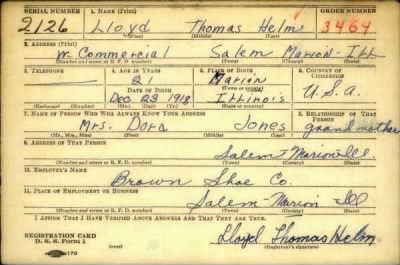 SERIAL NUMBER 1. NAME (Print) ORDER NUMBER
2126 Lloyd Thomas Helm 3464
(First) (Middle) (Last)
2. ADDRESS (Print)
W. Commercial Salem Marion-Ill
(Number and street or R. F. D. number) (Town) (County) (State)
3. TELEPHONE 4. AGE IN YEARS 5. PLACE OF BIRTH 6. COUNTRY OF CITIZENSHIP
21 Marion
DATE OF BIRTH (Town or county)
Dec 23 1918 Illinois U.S.A.
(Exchange) (Number) (Mo.) (Day) (Yr.) (State or country)
7. NAME OF PERSON WHO WILL ALWAYS KNOW YOUR ADDRESS 8. RELATIONSHIP OF THAT PERSON
Mrs. Dora Jones grandmother
(Mr., Mrs., Miss) (First) (Middle) (Last)
9. ADDRESS OF THAT PERSON
Salem-Marion Ill.
(Number and street or R. F. D. number) (Town) (County) (State)
10. EMPLOYER'S NAME
Brown Shoe Co.
11. PLACE OF EMPLOYMENT OR BUSINESS
Salem-Marion Ill
(Number and street or R. F. D. number) (Town) (County) (State)
I AFFIRM THAT I HAVE VERIFIED ABOVE ANSWERS AND THAT THEY ARE TRUE.
REGISTRATION CARD
D. S. S. Form 1 (over) Lloyd Thomas Helm
(Registrant's signature)